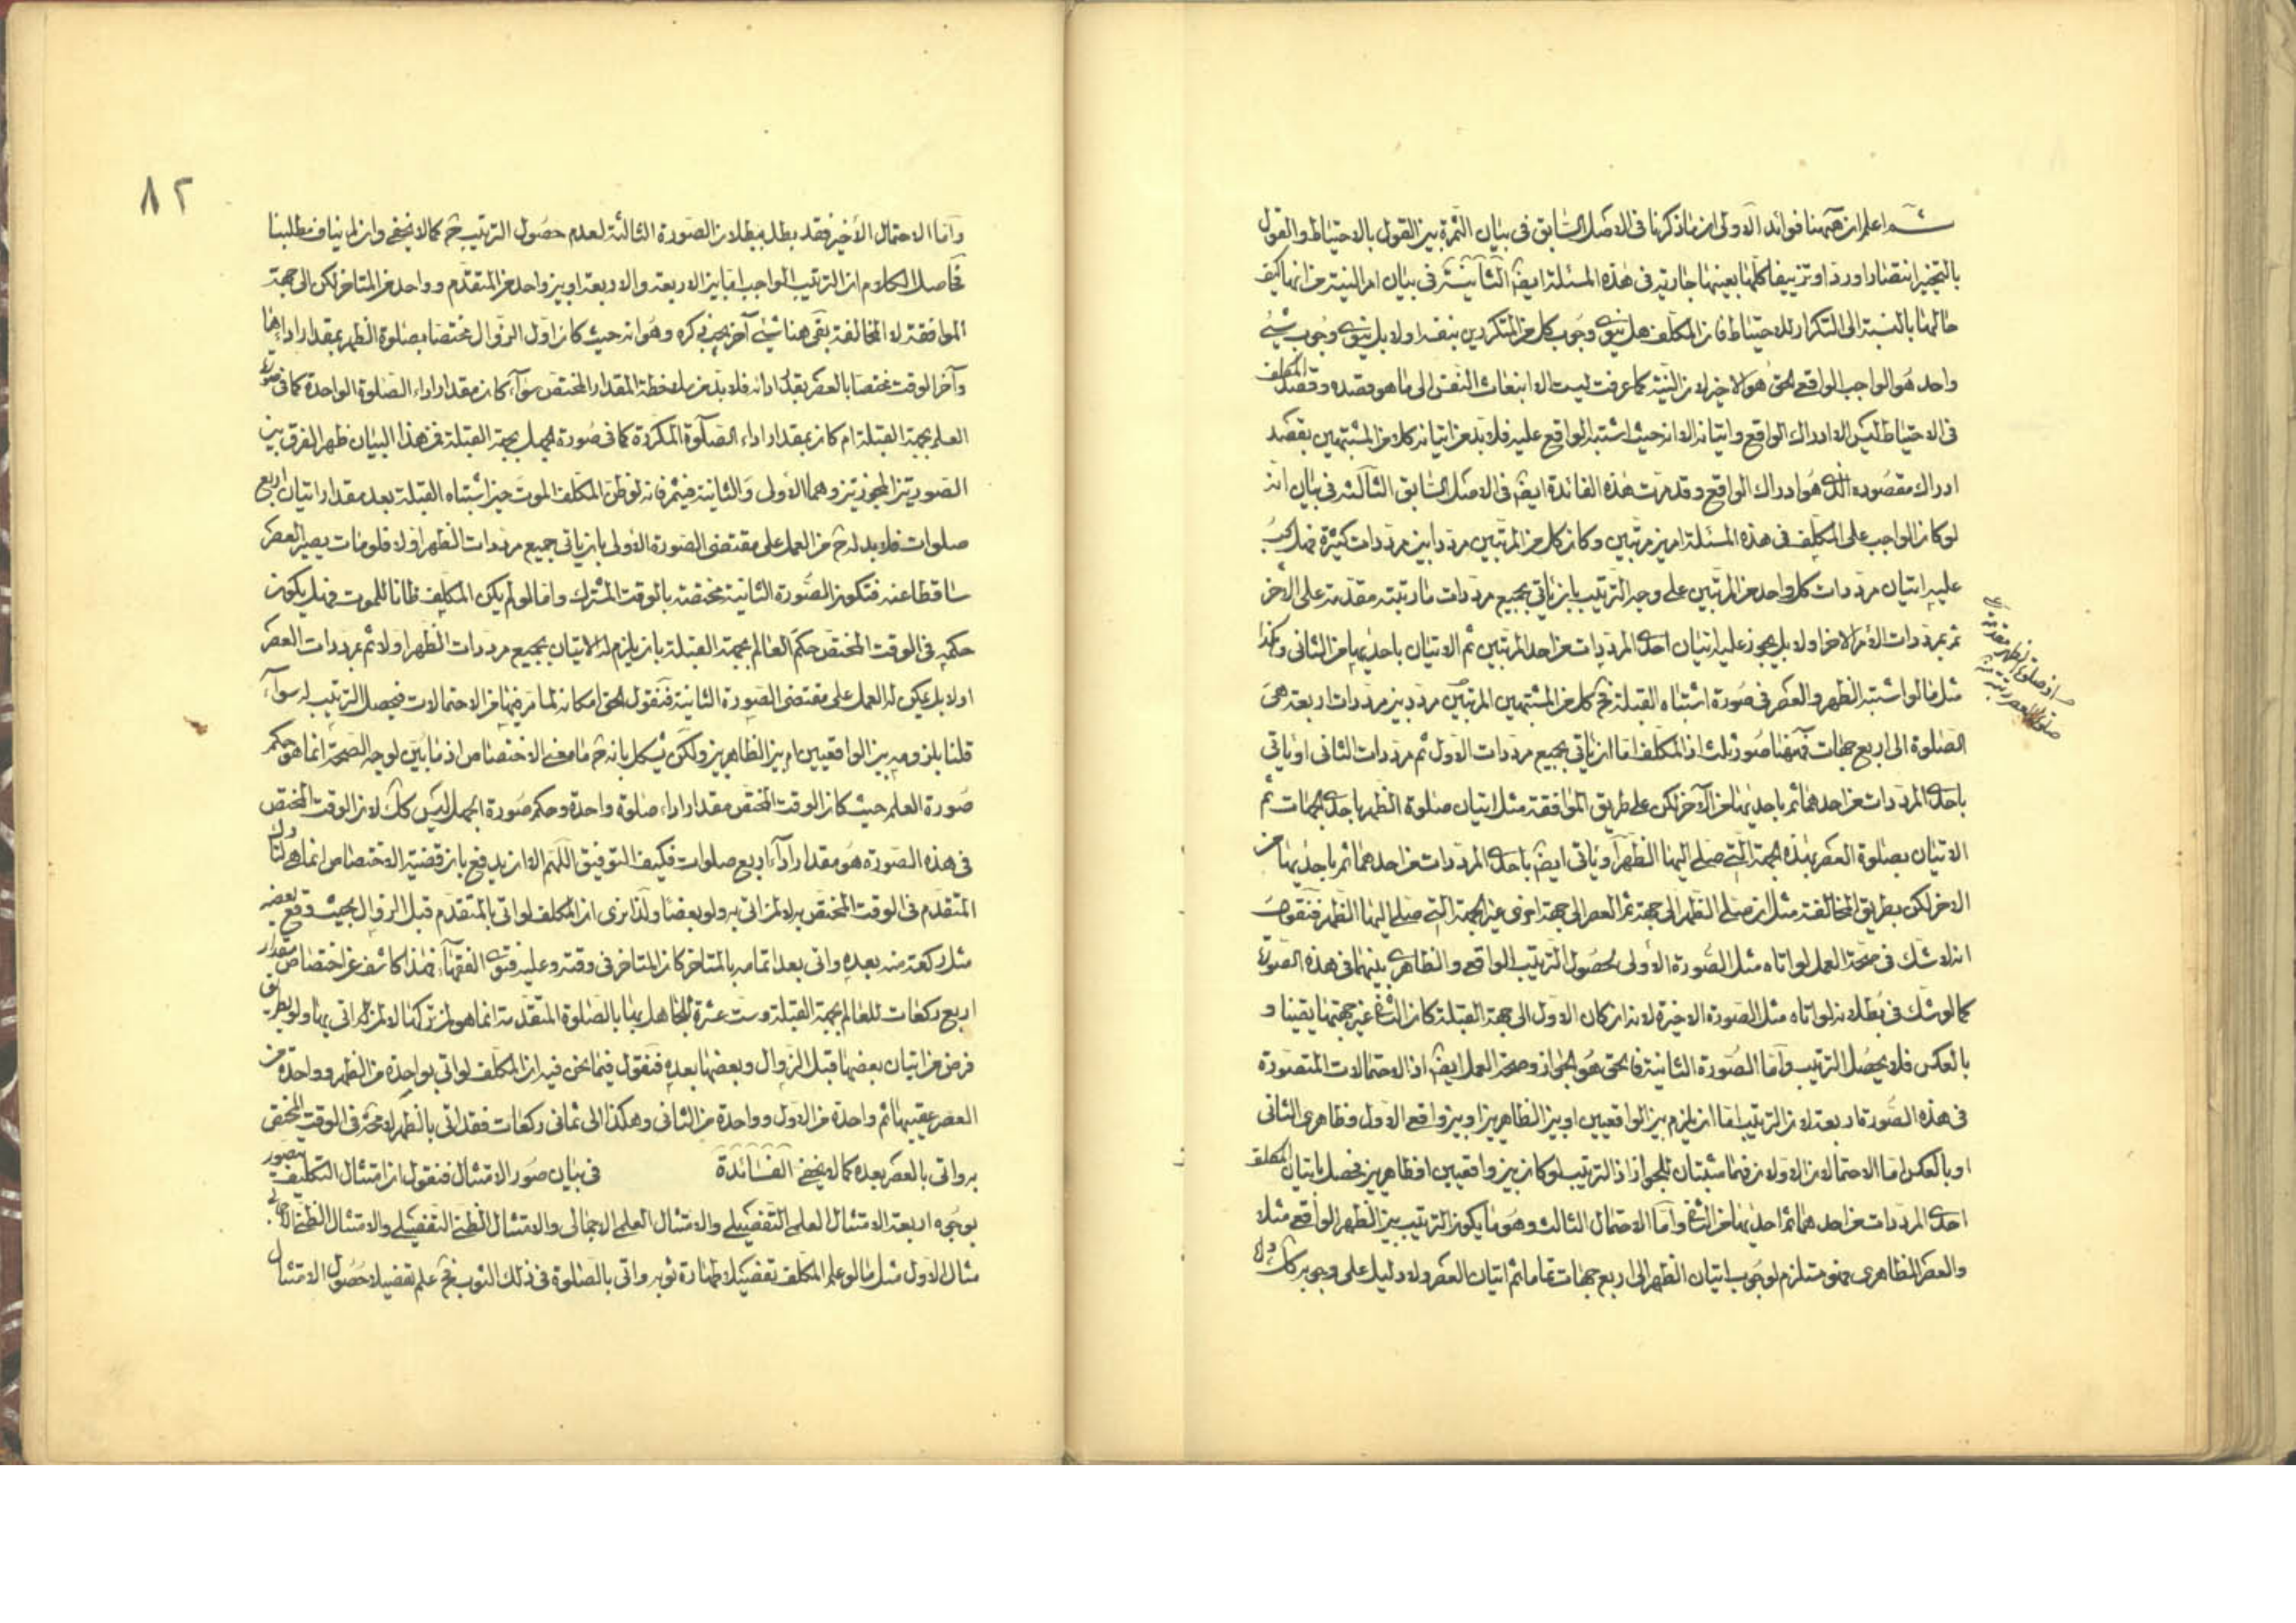 ثم اعلم ان ههنا فوائد الاولى ان ما ذكرنا فى الاصل السابق فى بيان الثمرة بين القول بالاحتياط والقول
بالتخيير انتصارا ورد او تزييفا كلها بعينها جارية فى هذه المسئلة ايضا الثانية فى بيان امر النية من انها كيف
حالها بالنسبة الى التكرار للاحتياط فان المكلف هل ينوى وجوب كل من المتكررين بنفسه اولا بل ينوى وجوب شئ
واحد هو الواجب الواقعى الحق هو الاخير لان النية كما عرفت ليست الا انبعاث النفس الى ما هو قصده وقصد المكلف
فى الاحتياط ليس الا ادراك الواقع واتيانه الا انه حيث اشتبه الواقع عليه فلا بد من اتيانه كلا من المشتبهين بقصد
ادراك مقصوده الذى هو ادراك الواقع وقد مرت هذه الفائدة ايضا فى الاصل السابق الثالثة فى بيان انه
لو كان الواجب على المكلف فى هذه المسئلة امرين مرتبين وكان كل من المرتبين مرددا بين مرددات كثيرة فهل يجب
عليه اتيان مرددات كل واحد من المرتبين على وجه الترتيب بان ياتى بجميع مرددات ما رتبته مقدمة على الاخر
ثم بمرددات الامر الاخر اولا بل يجوز عليه اتيان احدى المرددات من احد المرتبين ثم الاتيان باحديها من الثانى وهكذا
مثل ما لو اشتبه الظهر والعصر فى صورة اشتباه القبلة فح كل من المشتبهين المرتبين مردد بين مرددات اربعة هى
الصلوة الى اربع جهات فههنا صور ثلث اذ المكلف اما ان ياتى بجميع مرددات الاول ثم مرددات الثانى او ياتى
باحدى المرددات من احدهما ثم باحديها من الاخر لكن على طريق الموافقة مثل اتيان صلوة الظهر باحدى الجهات ثم
الاتيان بصلوة العصر بهذه الجهة التى صلى اليها الظهر او ياتى ايضا باحدى المرددات من احدهما ثم باحديها من
الاخر لكن بطريق المخالفة مثل ان صلى الظهر الى جهة ثم العصر الى جهة اخرى غير الجهة التى صلى اليها الظهر فنقول
انه لا شك فى صحة العمل لو اتاه مثل الصورة الاولى لحصول الترتيب الواقعى والظاهرى بينهما فى هذه الصورة
كما لا شك فى بطلانه لو اتاه مثل الصورة الاخيرة لانه ان كان الاول الى جهة القبلة كان الثانى غير جهتها يقينا و
بالعكس فلا يحصل الترتيب واما الصورة الثانية فالحق هو الجواز وصحة العمل ايضا اذ الاحتمالات المتصورة
فى هذه الصورة اربعة لان الترتيب اما ان يلزم بين الواقعيين او بين الظاهريين او بين واقع الاول وظاهرى الثانى
او بالعكس اما الاحتمالان الاولان فهما مثبتان للجواز اذ الترتيب لو كان بين واقعيين او ظاهريين فحصل باتيان المكلف
احدى المرددات من احدهما ثم احديها من الثانى واما الاحتمال الثالث وهو ما يكون الترتيب بين الظهر الواقعى مثلا
والعصر الظاهرى فهو مستلزم لوجوب اتيان الظهر الى اربع جهات تماما ثم اتيان العصر ولا دليل على وجوبه كك
اذ صلوة الظهر مقدمة على
صلوة العصر رتبة منه
٨٢
واما الاحتمال الاخير فقد بطل ببطلان الصورة الثالثة لعدم حصول الترتيب ح كما لا يخفى وان لم يناف مطلبنا
فحاصل الكلام ان الترتيب الواجب اما بين الاربعة والاربعة او بين واحد من المتقدم وواحد من المتاخر لكن الى جهة
الموافقة لا المخالفة بقى هنا شئ آخر يجب ذكره وهو انه حيث كان اول الزوال مختصا بصلوة الظهر بمقدار ادائها
وآخر الوقت مختصا بالعصر بقدر ادائه فلا بد من ملاحظة المقدار المختص سواء كان مقدار اداء الصلوة الواحدة كما فى صورة
العلم بجهة القبلة ام كان بمقدار اداء الصلوة المكررة كما فى صورة الجهل بجهة القبلة فمن هذا البيان ظهر الفرق بين
الصورتين المجوزتين وهما الاولى والثانية فيثمر فانه لو ظن المكلف الموت حين اشتباه القبلة بعد مقدار اتيان اربع
صلوات فلا بد له ح من العمل على مقتضى الصورة الاولى بان ياتى جميع مرددات الظهر اولا فلو مات يصير العصر
ساقطا عنه فتكون الصورة الثانية مختصة بالوقت المشترك واما لو لم يكن المكلف ظانا للموت فهل يكون
حكمه فى الوقت المختص حكم العالم بجهة القبلة بان يلزم له الاتيان بجميع مرددات الظهر اولا ثم بمرددات العصر
اولا بل يمكن له العمل على مقتضى الصورة الثانية فنقول الحق امكانه لما مر فيها من الاحتمالات فيحصل الترتيب له سواء
قلنا بلزومه بين الواقعيين ام بين الظاهريين ولكن يشكل بانه ح ما معنى الاختصاص اذ ما بين لوجه الصحة انما هو حكم
صورة العلم حيث كان الوقت المختص مقدار اداء صلوة واحدة وحكم صورة الجهل ليس كك لان الوقت المختص
فى هذه الصورة هو مقدار اداء اربع صلوات فكيف التوفيق اللهم الا ان يدفع بان قضية الاختصاص انما هى لتارك
المتقدم فى الوقت المختص به لا لمن اتى به ولو بعضا ولذا نرى ان المكلف لو اتى بالمتقدم قبل الزوال بحيث وقع بعضه
مثل ركعة منه بعده واتى بعد اتمامه بالمتاخر كان المتاخر فى وقته وعليه فتوى الفقهاء فهذا كاشف عن اختصاص مقدار
اربع ركعات للعالم بجهة القبلة وست عشرة للجاهل بها بالصلوة المتقدمة انما هو لمن تركها لا لمن اتى بها ولو بطريق
فرض من اتيان بعضها قبل الزوال وبعضها بعده فنقول فيما نحن فيه ان المكلف لو اتى بواحدة من الظهر وواحدة من
العصر عقيبها ثم واحدة من الاول وواحدة من الثانى وهكذا الى ثمانى ركعات فقد اتى بالظهر لا محة فى الوقت المختص
به واتى بالعصر بعده كما لا يخفى الفائدة فى بيان صور الامتثال فنقول ان امتثال التكليف يتصور
بوجوه اربعة الامتثال العلمى التفصيلى والامتثال العلمى الاجمالى والامتثال الظنى التفصيلى والامتثال الظنى الاجمالى
مثال الاول مثل ما لو علم المكلف تفصيلا طهارة ثوبه واتى بالصلوة فى ذلك الثوب فح علم تفصيلا حصول الامتثال